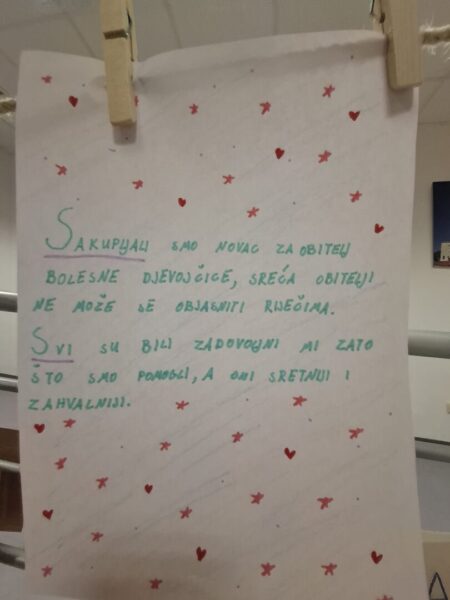 SAKUPLJALI SMO NOVAC ZA OBITELJ
BOLESNE DJEVOJČICE, SREĆA OBITELJI
NE MOŽE SE OBJASNITI RIJEČIMA.
SVI SU BILI ZADOVOLJNI MI ZATO
ŠTO SMO POMOGLI, A ONI SRETNIJI I
ZAHVALNIJI.